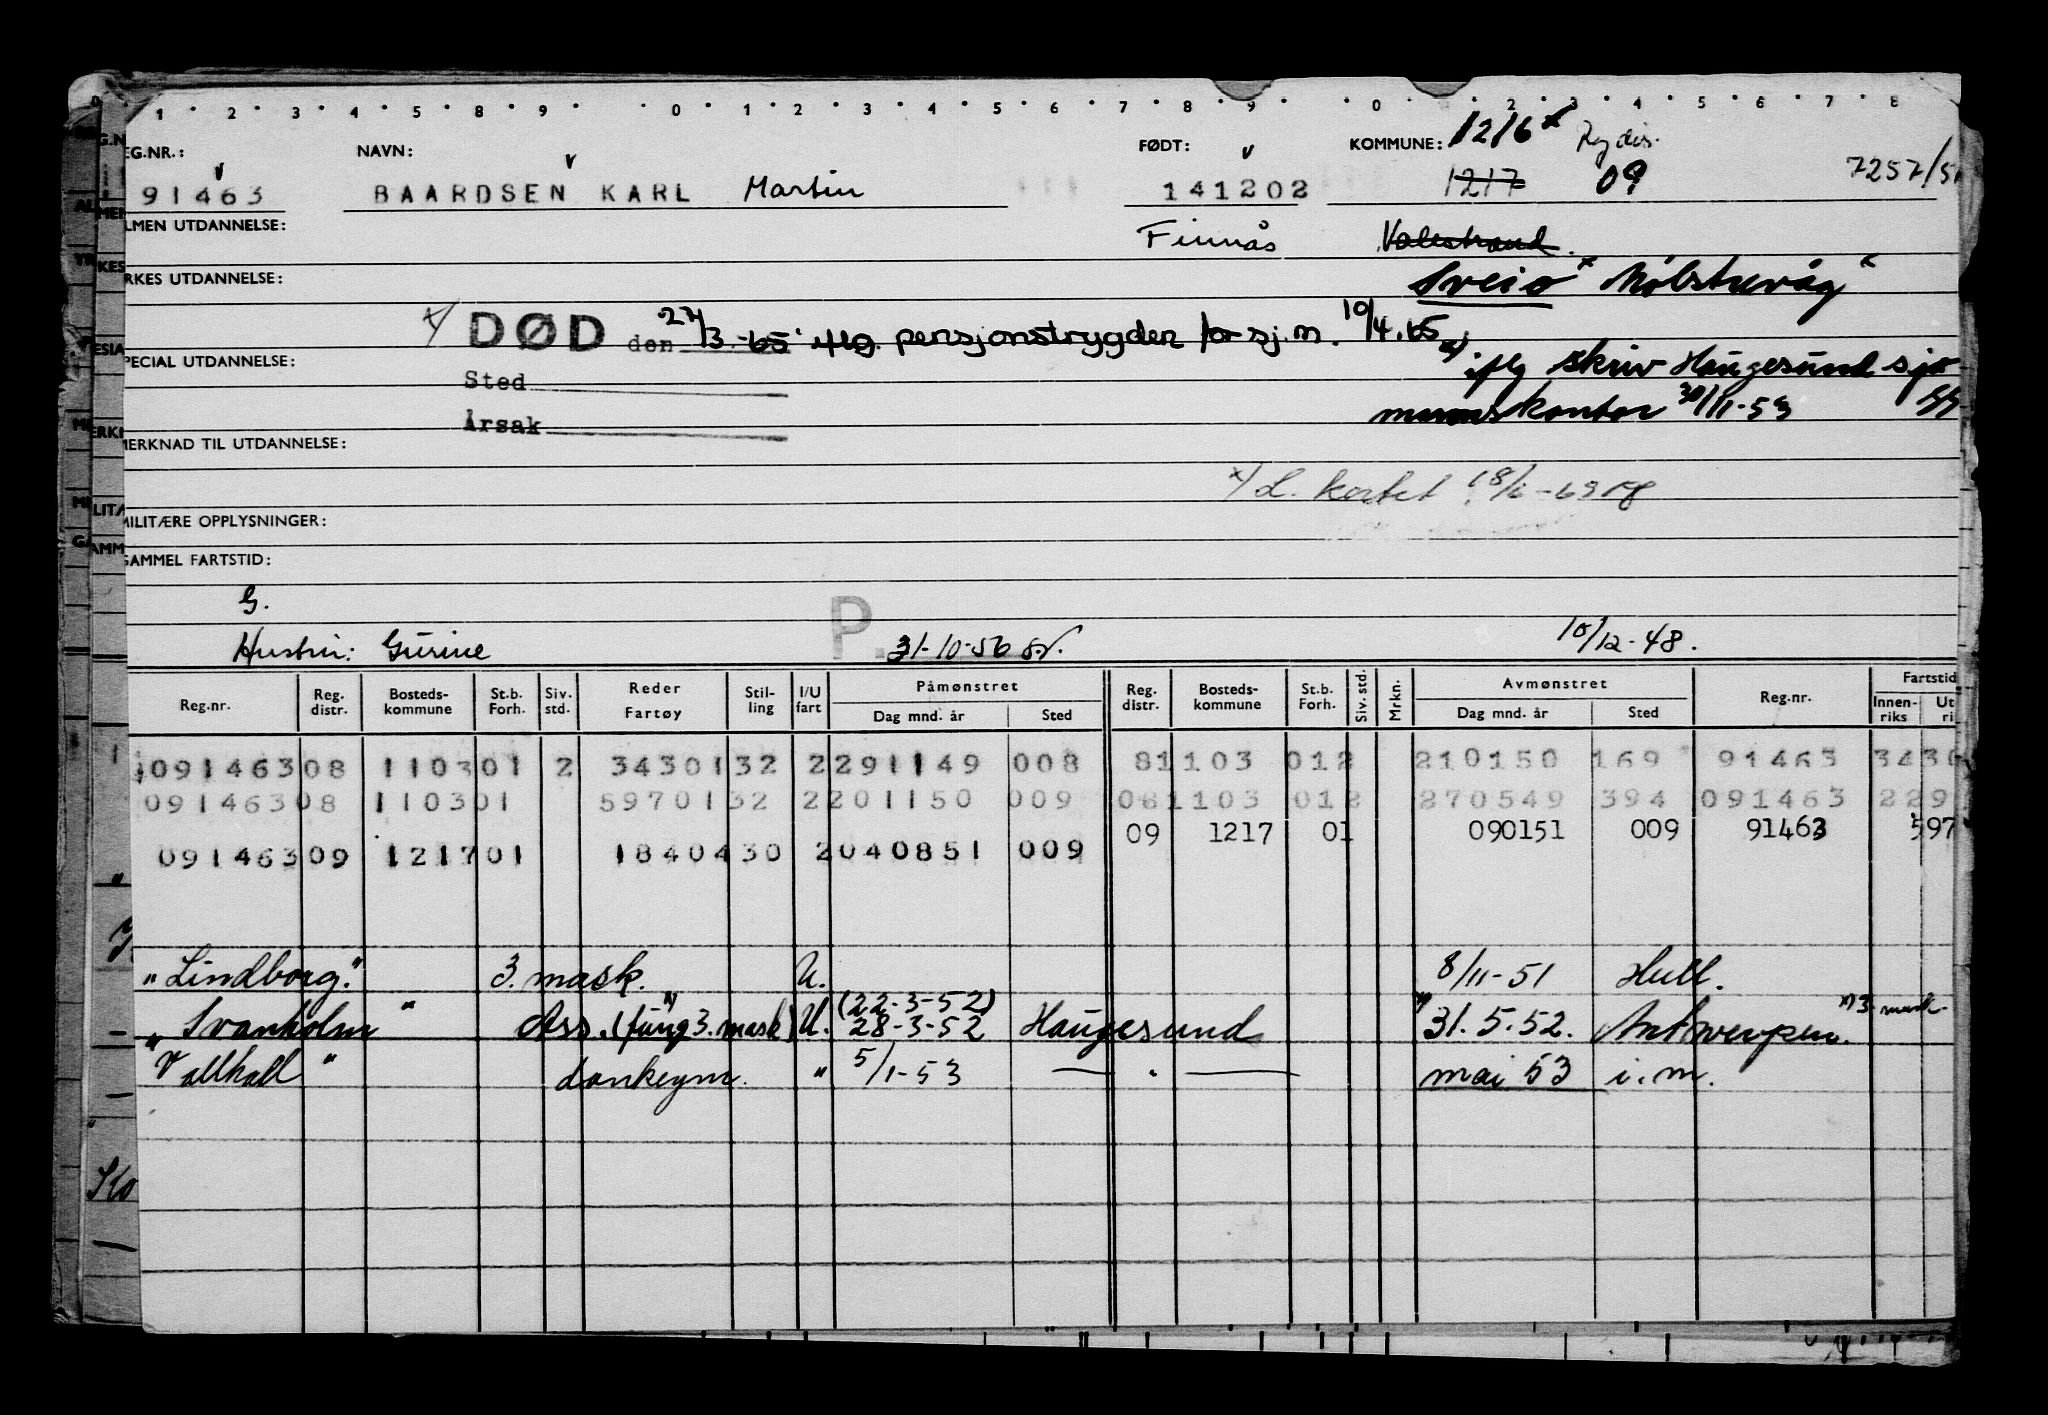 1 2 3 4 5 8 9 0 1 2 3 4 5 6 7 8 9 0 2 3 4 5 6 7 8
EG.NR.: NAVN: FØDT: KOMMUNE: 1216 x
91463 BAARDSEN KARL Martin 141202 1217 09 7257/5
LMEN UTDANNELSE: Finnås Valestrand.
RKES UTDANNELSE: Sveio x
x/ DØD den 27/3-65 iflg. pensjonstrygden for sj.m. 10/4.65
PECIAL UTDANNELSE: iflg skriv Haugesund sjø
Sted mannskontor 30/11-53
Årsak
MERKNAD TIL UTDANNELSE:
x/ L. kortet 18/6-69
MILITÆRE OPPLYSNINGER:
GAMMEL FARTSTID:
G.
Hustru: Gurine P. 31-10-56 10/12-48.
Reg.nr. Reg. distr. Bosteds- kommune St.b. Forh. Siv. std. Reder Fartøy Stil- ling I/U fart Påmønstret Dag mnd. år Sted Reg. distr. Bosteds- kommune St.b. Forh. Siv. std. Mrkn. Avmønstret Dag mnd. år Sted Reg.nr. Fartstid Innen- riks Ut ri
09146308 110301 2 3430132 2291149 008 81103 012 210150 169 91463 343
09146308 110301 5970132 2201150 009 081103 012 270549 394 091463 229
09 1217 01 090151 009 91463 597
09146309 121701 1840430 2040851 009
"Lindborg." 3. mask. U. 8/11-51 Hull.
"Svanholm" Ass. (fung 3. mask) U. (22-3-52) 28-3-52 Haugesund x) 31.5.52. Antwerpen. x) 3. mask.
"Vallhall" donkeym. " 5/1-53 — " — mai 53 i.m.